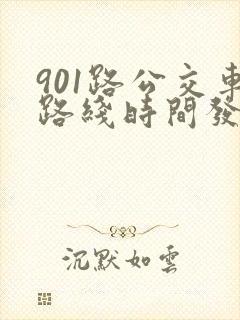 901路公交車
路綫時間發
沉默如雲